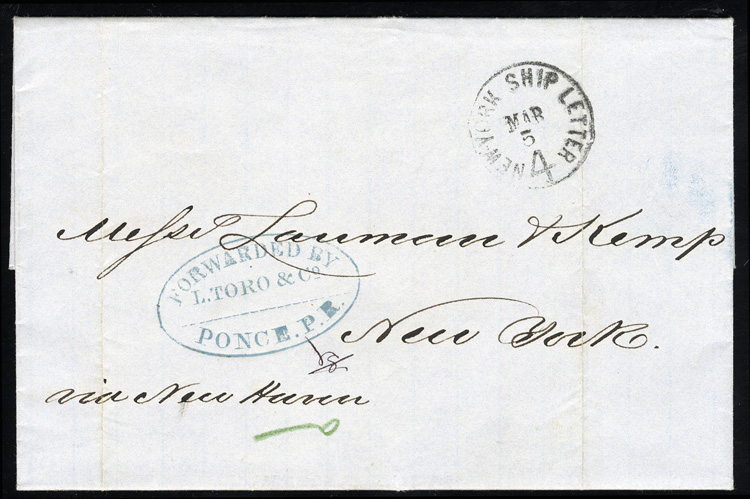 NEW-YORK SHIP LETTER
MAR
5
4
Messrs Lanman & Kemp
FORWARDED BY
L. TORO & Co
PONCE. P. R.
New York.
via New Haven